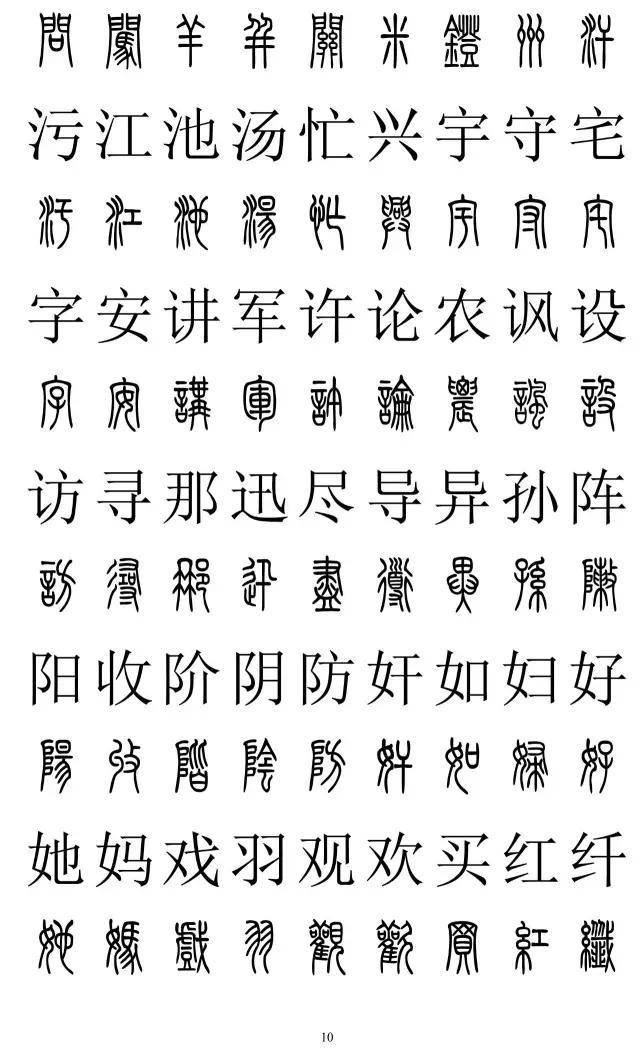 問闖羊并關米鐙州汗
污江池汤忙兴宇守宅
污江池湯忙興宇守宅
字安讲军许论农讽设
字安講軍許論農諷設
访寻那迅尽导异孙阵
訪尋那迅盡導異孫陳
阳收阶阴防奸如妇好
陽收階陰防奸如婦好
她妈戏羽观欢买红纤
她媽戲羽觀歡買紅纖
10